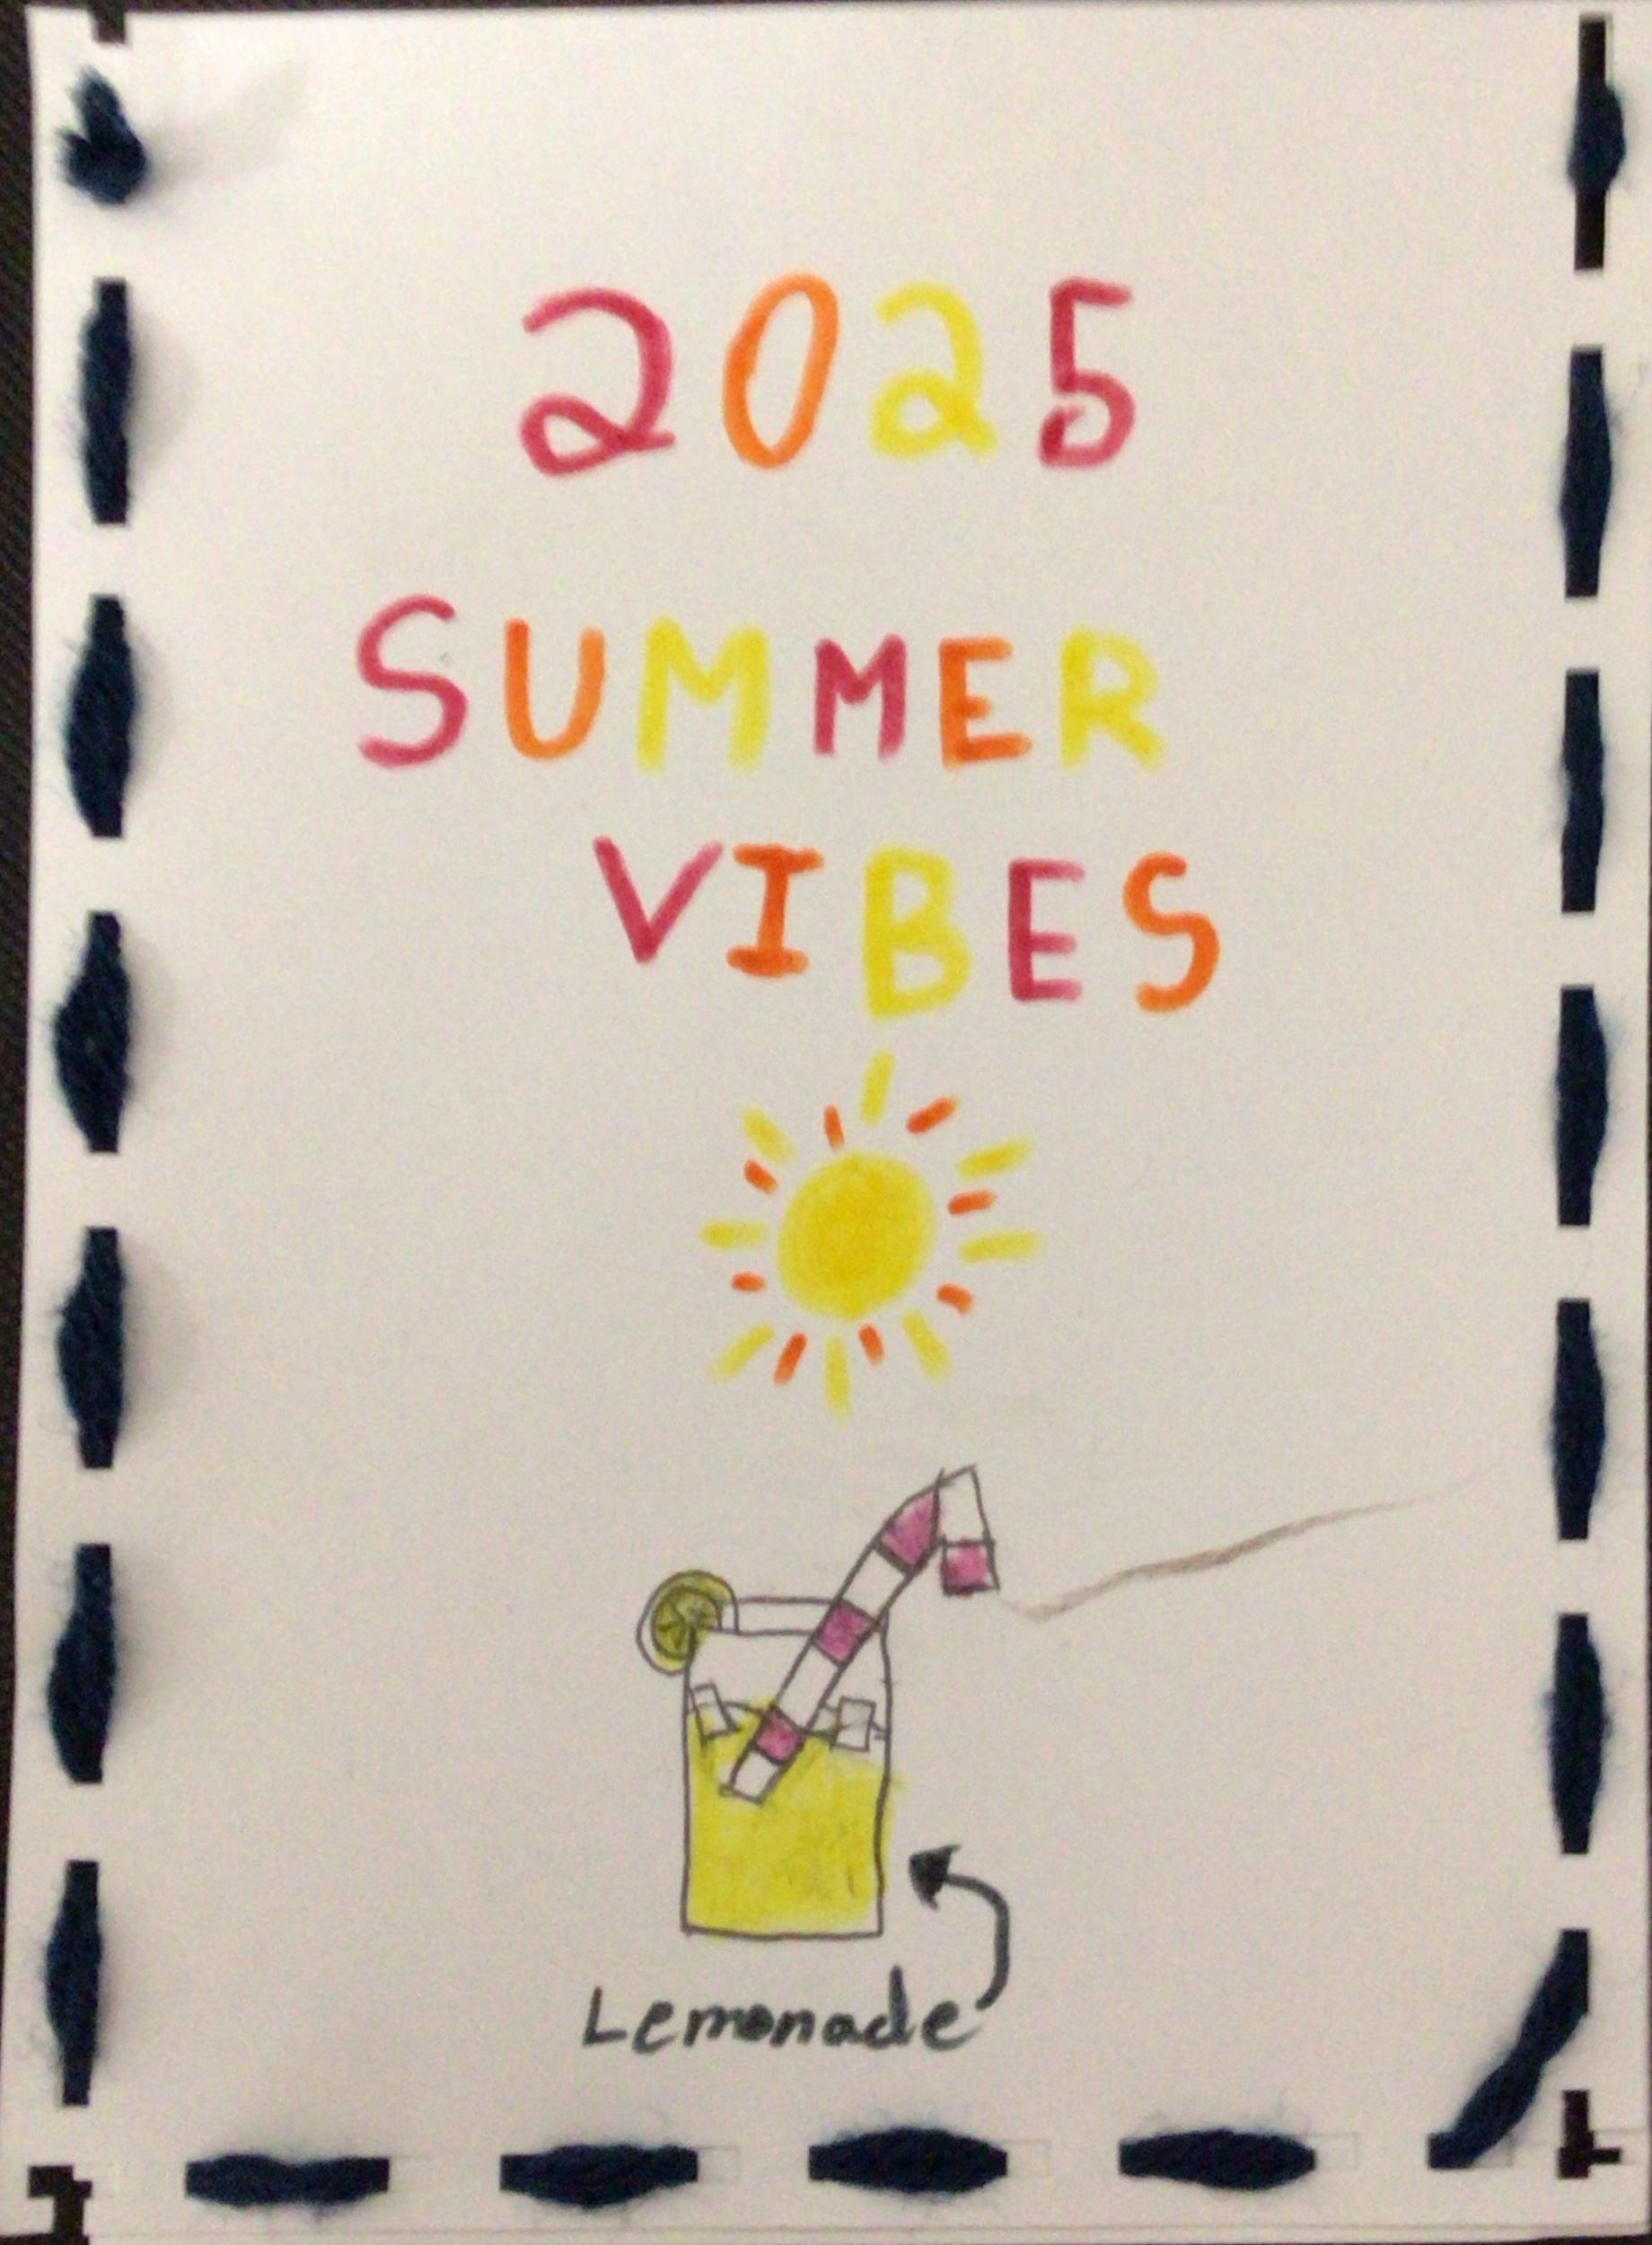 2025
SUMMER
VIBES
Lemonade